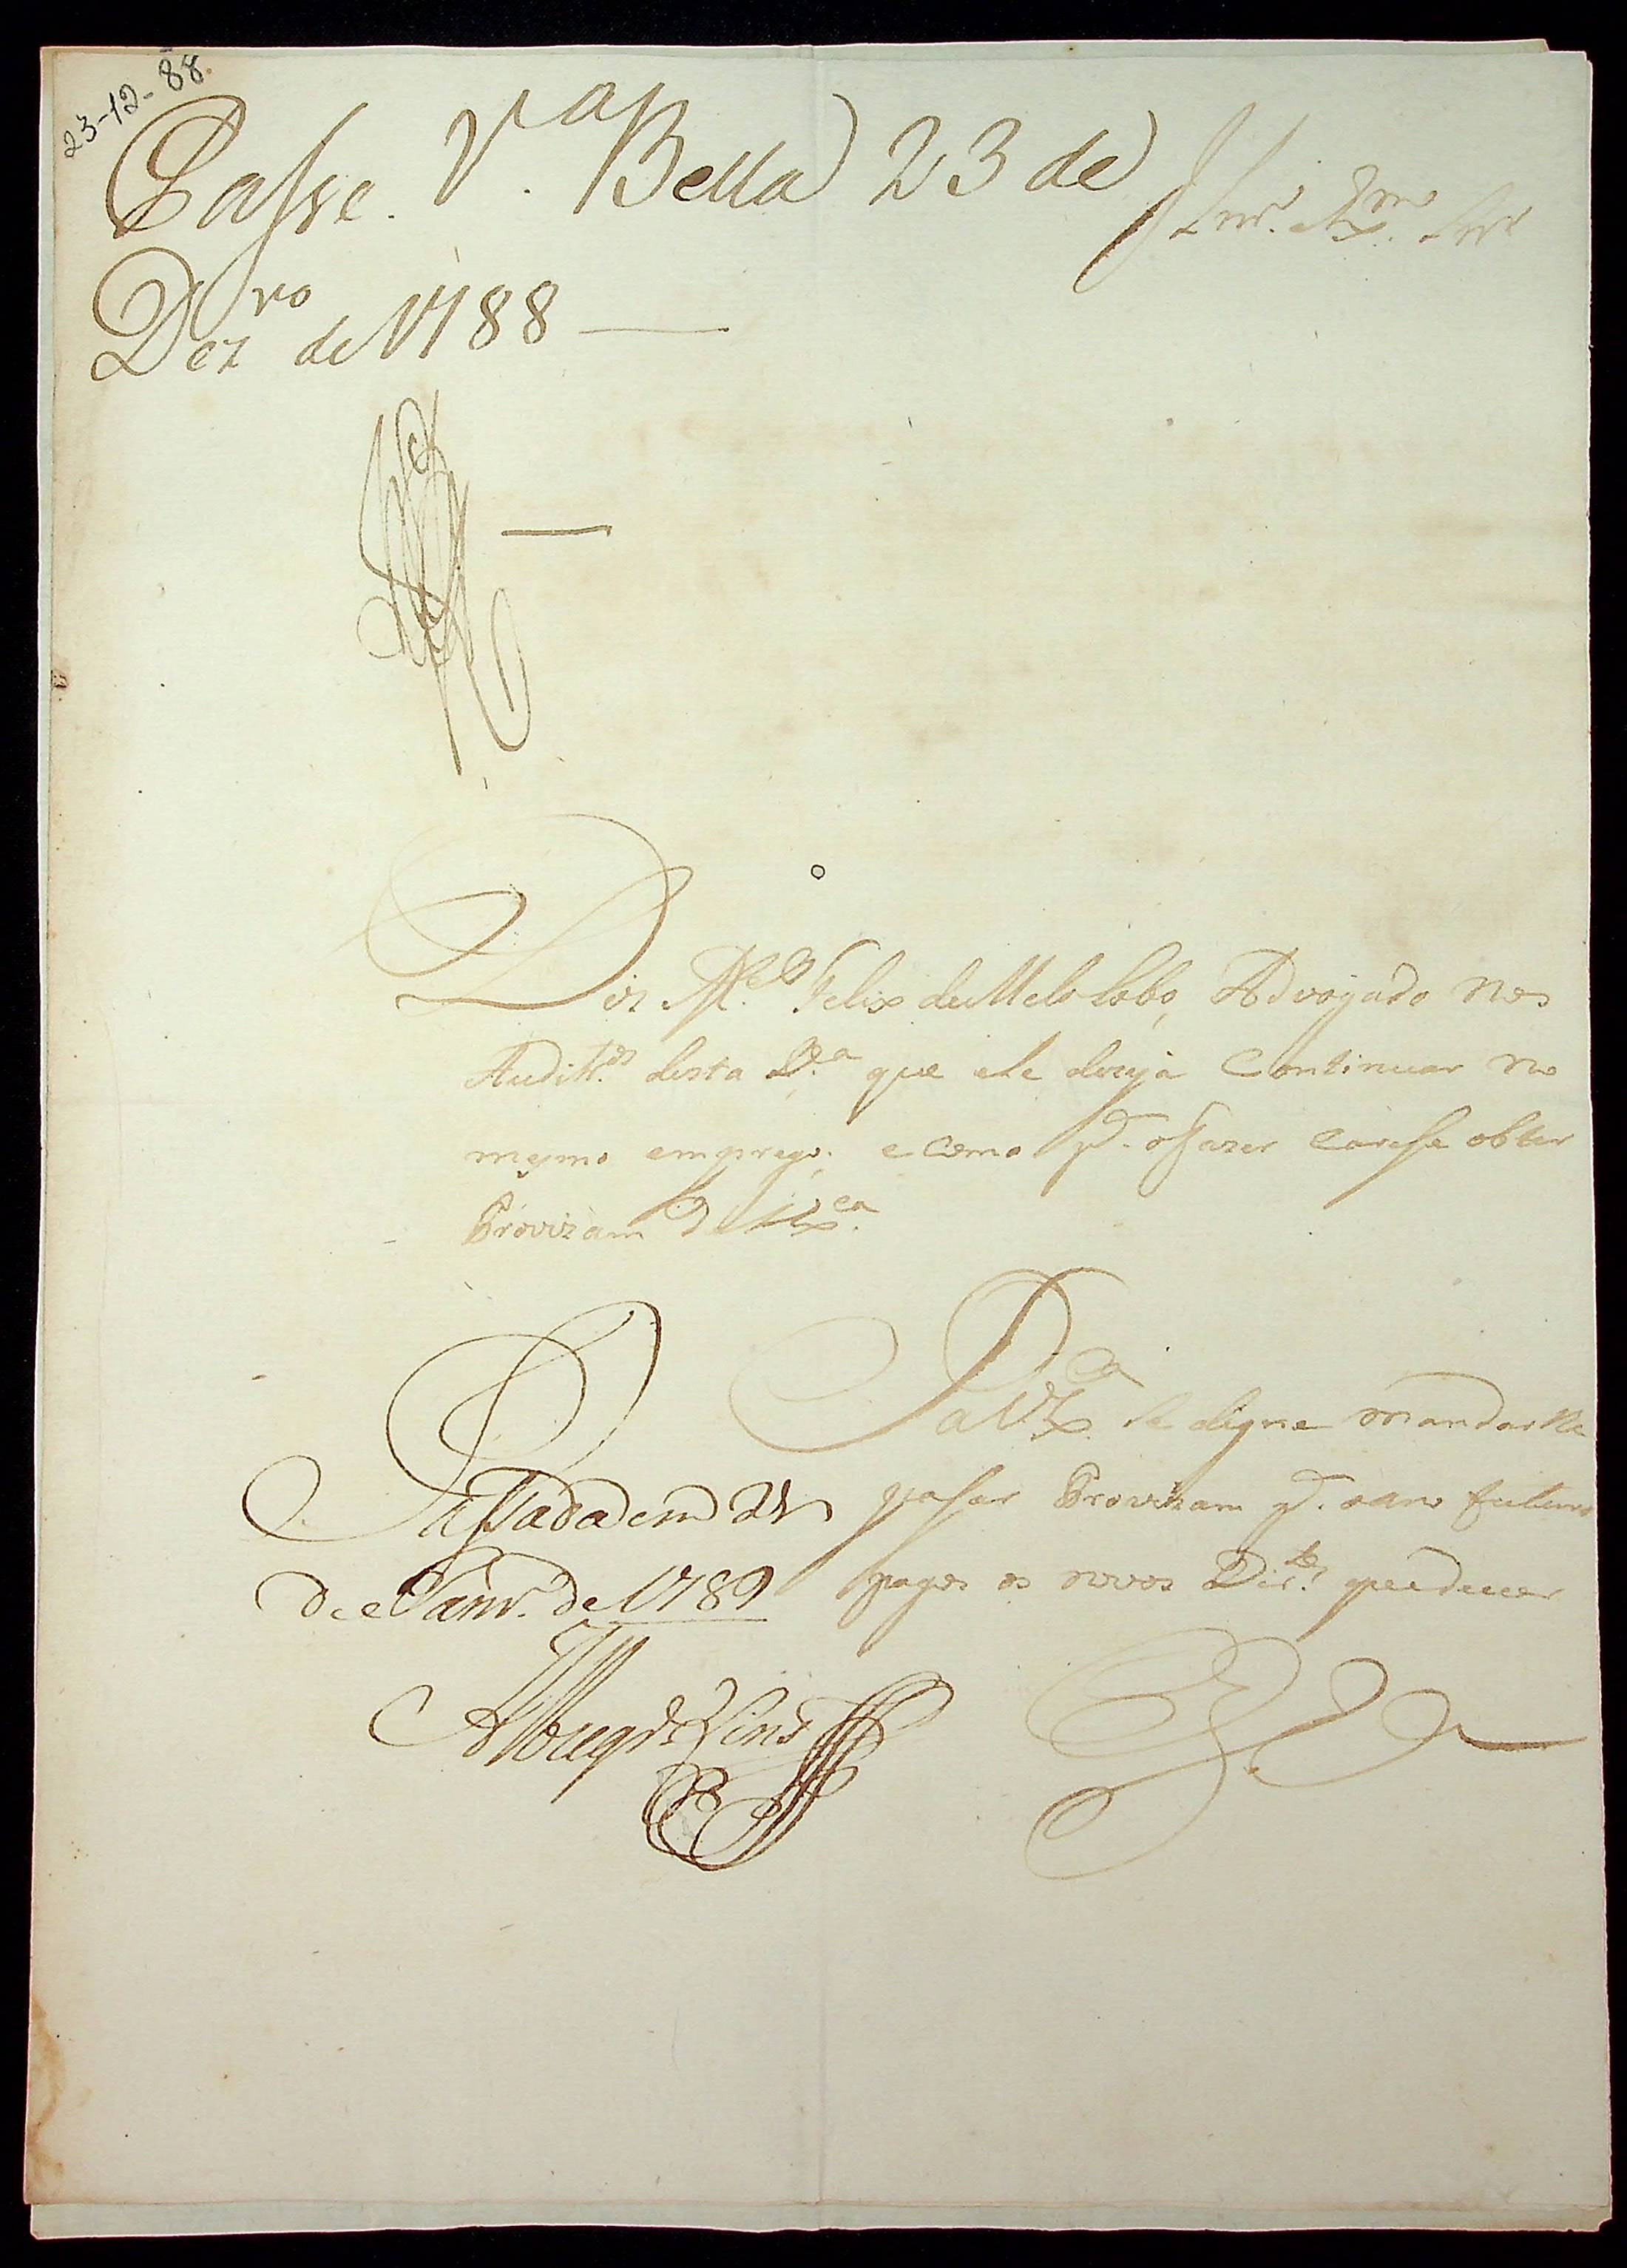 23-12-88.
Passe. V.ª Bella 23 de
Dez.ro de 1788
Illmo. Exmo. Snr.
Diz M.el Felix de Melo Lobo, Advogado nos
Audit.os desta V.ª que ele dezeja Continuar no
mesmo emprego; e como p.ª o fazer caresse obter
Provizam de V. Ex.ca
P. a V. Ex.ca se digne mandar lhe
pasar Provizam p.ª o ano futuro
pagos os novos Dir.tos que dever
Passada em 21
de Janr.º de 1789